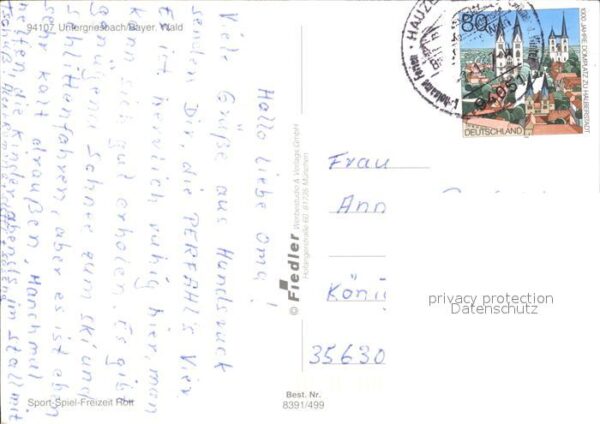 94107 Untergriesbach/Bayer. Wald
Hallo liebe Oma!
Viele Grüße aus Hundsruck
senden Dir, die PERFAHL'S Vier
Es ist herrlich ruhig hier, man
kann sich gut erholen. Es gibt
genügend Schnee zum Ski und
Schlittenfahren, aber es ist eben
sehr kalt draußen. Manchmal
helfen die Kinder abends im Stall mit
Sport-Spiel-Freizeit Rott
© Fiedler Werbestudio & Verlags GmbH
81726 München
Best. Nr.
8391/499
80
1000 JAHRE DOMPLATZ ZU HALBERSTADT
DEUTSCHLAND
HAUZE
Frau
Ann
Köni
35630
privacy protection
Datenschutz